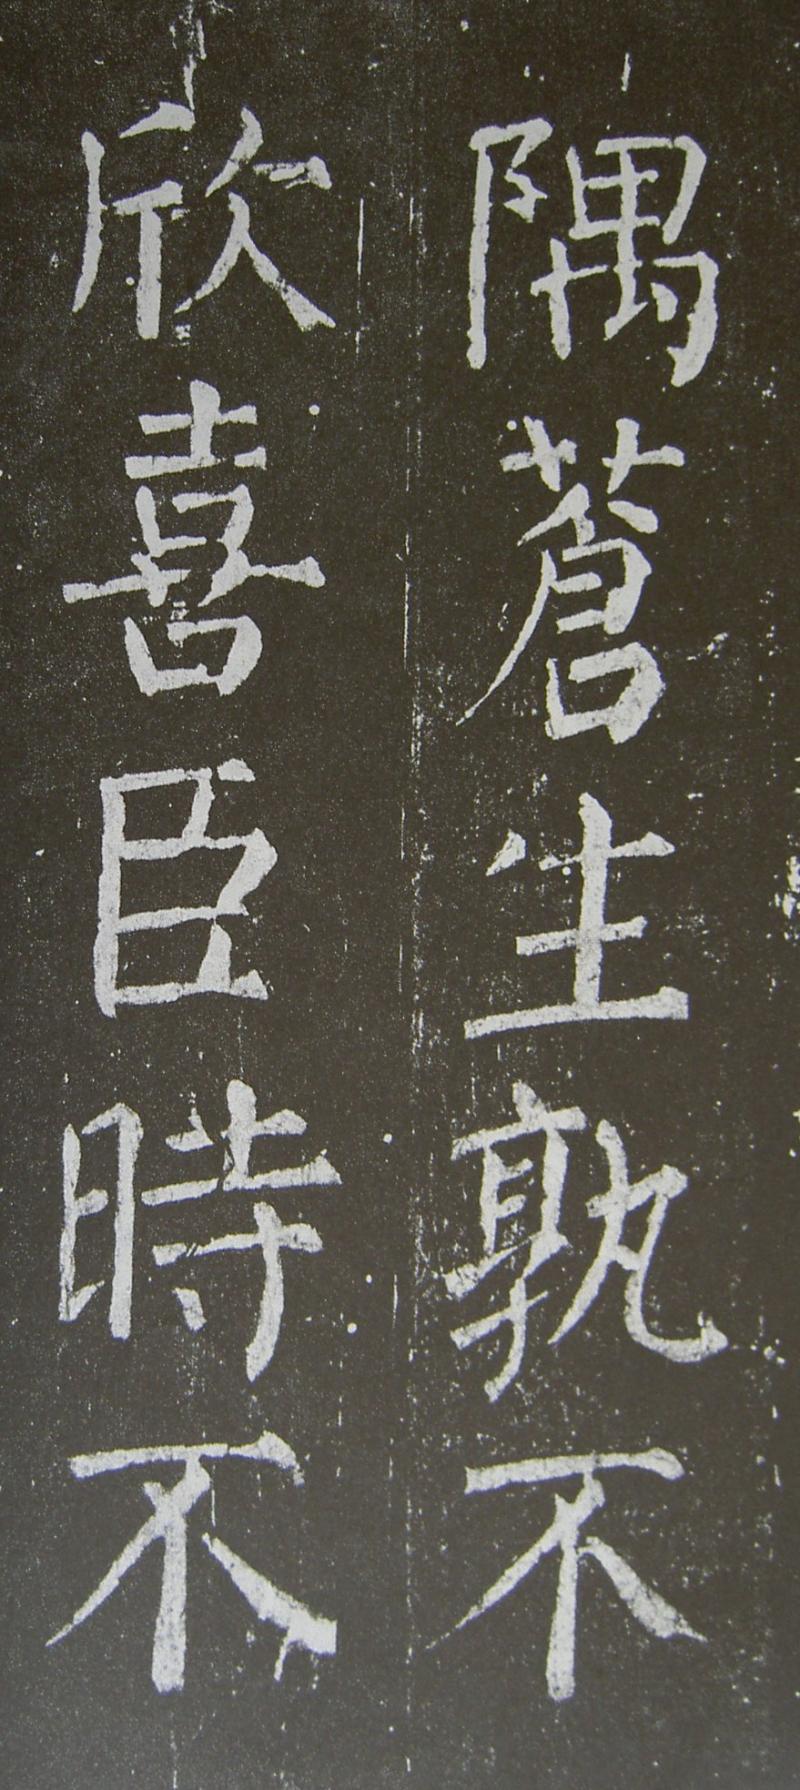 隅蒼生孰不
欣喜臣時不